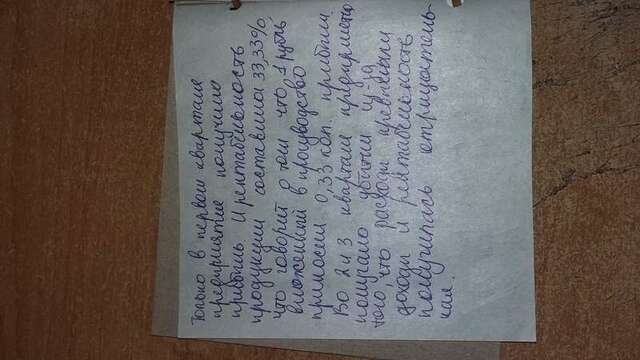 Только в первом квартале
предприятие получило
прибыль и рентабельность
продукции составила 33,33%
что говорит о том что 1 рубль
вложенный в производство
приносил 0,33 коп прибыли.
Во 2 и 3 квартале предприятие
получало убытки из-за
того, что расходы превышали
доходы и рентабельность
получилась отрицатель-
ная.